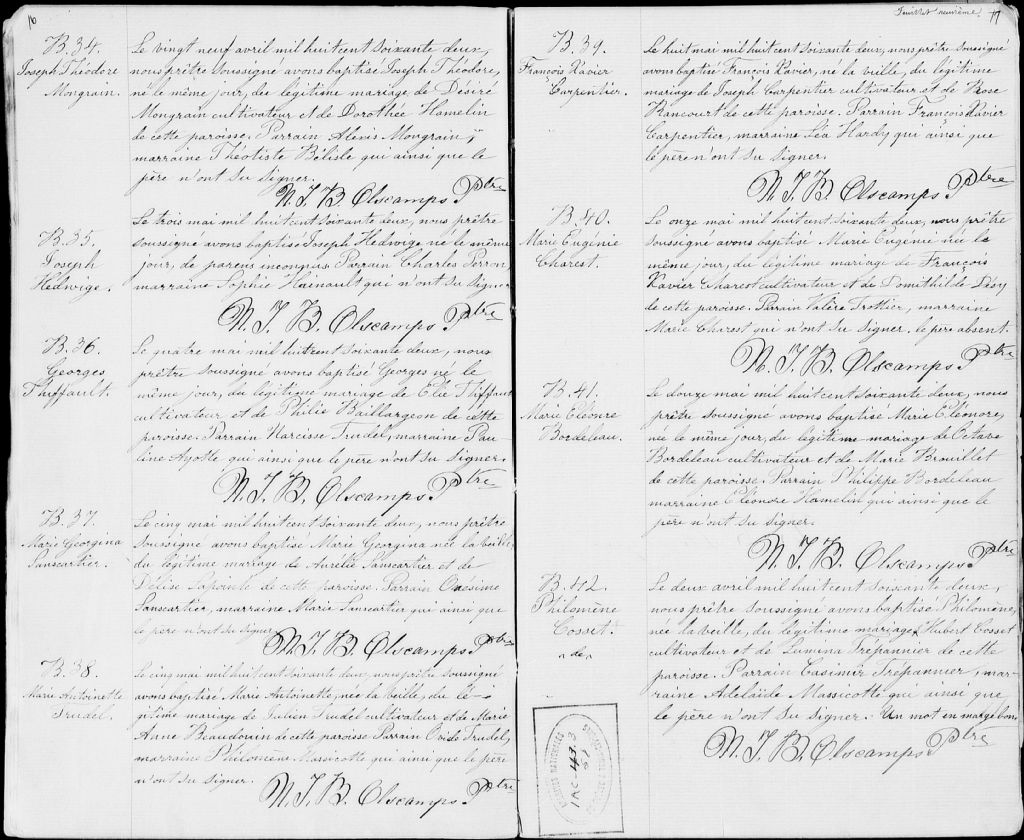 16
B. 34.
Joseph Théodore
Mongrain.
Le vingt neuf avril mil huit cent soixante deux,
nous prêtre soussigné avons baptisé Joseph Théodore,
né le même jour, du légitime mariage de Désiré
Mongrain cultivateur et de Dorothée Hamelin
de cette paroisse. Parrain Alexis Mongrain,
marraine Théotiste Bélisle qui ainsi que le
père n'ont su signer.
N. J. B. Olscamps Ptre
B. 35.
Joseph
Hedwige.
Le trois mai mil huit cent soixante deux, nous prêtre
soussigné avons baptisé Joseph Hedwige né le même
jour, de parens inconnus. Parrain Charles Perron,
marraine Sophie Hainault qui n'ont su signer
N. J. B. Olscamps Ptre
B. 36
Georges
Thiffault.
Le quatre mai mil huit cent soixante deux, nous
prêtre soussigné avons baptisé Georges né le
même jour, du légitime mariage de Elie Thiffault
cultivateur et de Philie Baillargeon de cette
paroisse. Parrain Narcisse Trudel, marraine Pau-
line Ayotte qui ainsi que le père n'ont su signer.
N. J. B. Olscamps Ptre
B. 37.
Marie Georgina
Lanscartier.
Le cinq mai mil huit cent soixante deux, nous prêtre
soussigné avons baptisé Marie Georgina née la veille,
du légitime mariage de Aurélie Lanscartier et de
Délise Lapointe de cette paroisse. Parrain Onésime
Lanscartier, marraine Marie Lanscartier qui ainsi que
le père n'ont su signer
N. J. B. Olscamps Ptre
B. 38.
Marie Antoinette
Trudel.
Le cinq mai mil huit cent soixante deux, nous prêtre soussigné
avons baptisé Marie Antoinette, née la veille, du lé-
gitime mariage de Julien Trudel cultivateur et de Marie
Anne Beaudouin de cette paroisse Parrain Ovide Trudel,
marraine Philomène Massicotte qui ainsi que le père
n'ont su signer.
N. J. B. Olscamps Ptre
Feuillet neuvième. 17
B. 39.
François Xavier
Carpentier.
Le huit mai mil huit cent soixante deux, nous prêtre soussigné
avons baptisé François Xavier, né la veille, du légitime
mariage de Joseph Carpentier cultivateur et de Rose
Rancourt de cette paroisse. Parrain François Xavier
Carpentier, marraine Léa Hardy qui ainsi que
le père n'ont su signer.
N. J. B. Olscamps Ptre
B. 40.
Marie Eugénie
Charest.
Le onze mai mil huit cent soixante deux, nous prêtre
soussigné avons baptisé Marie Eugénie née le
même jour, du légitime mariage de François
Xavier Charest cultivateur et de Domithilde Désy
de cette paroisse. Parrain Valère Trottier, marraine
Marie Charest qui n'ont su signer, le père absent.
N. J. B. Olscamps Ptre
B. 41.
Marie Eléonore
Bordeleau.
Le douze mai mil huit cent soixante deux, nous
prêtre soussigné avons baptisé Marie Eléonore,
née le même jour, du légitime mariage de Octave
Bordeleau cultivateur et de Marie Brouillet
de cette paroisse. Parrain Philippe Bordeleau
marraine Eléonore Hamelin qui ainsi que le
père n'ont su signer.
N. J. B. Olscamps Ptre
B. 42.
Philomène
Cosset.
de
Le deux avril mil huit cent soixante deux,
nous prêtre soussigné avons baptisé Philomène,
née la veille, du légitime mariage Hubert Cosset
cultivateur et de Lumina Trépannier de cette
paroisse. Parrain Casimir Trépannier, mar-
raine Adelaïde Massicotte qui ainsi que
le père n'ont su signer. Un mot en marge bon
N. J. B. Olscamps Ptre